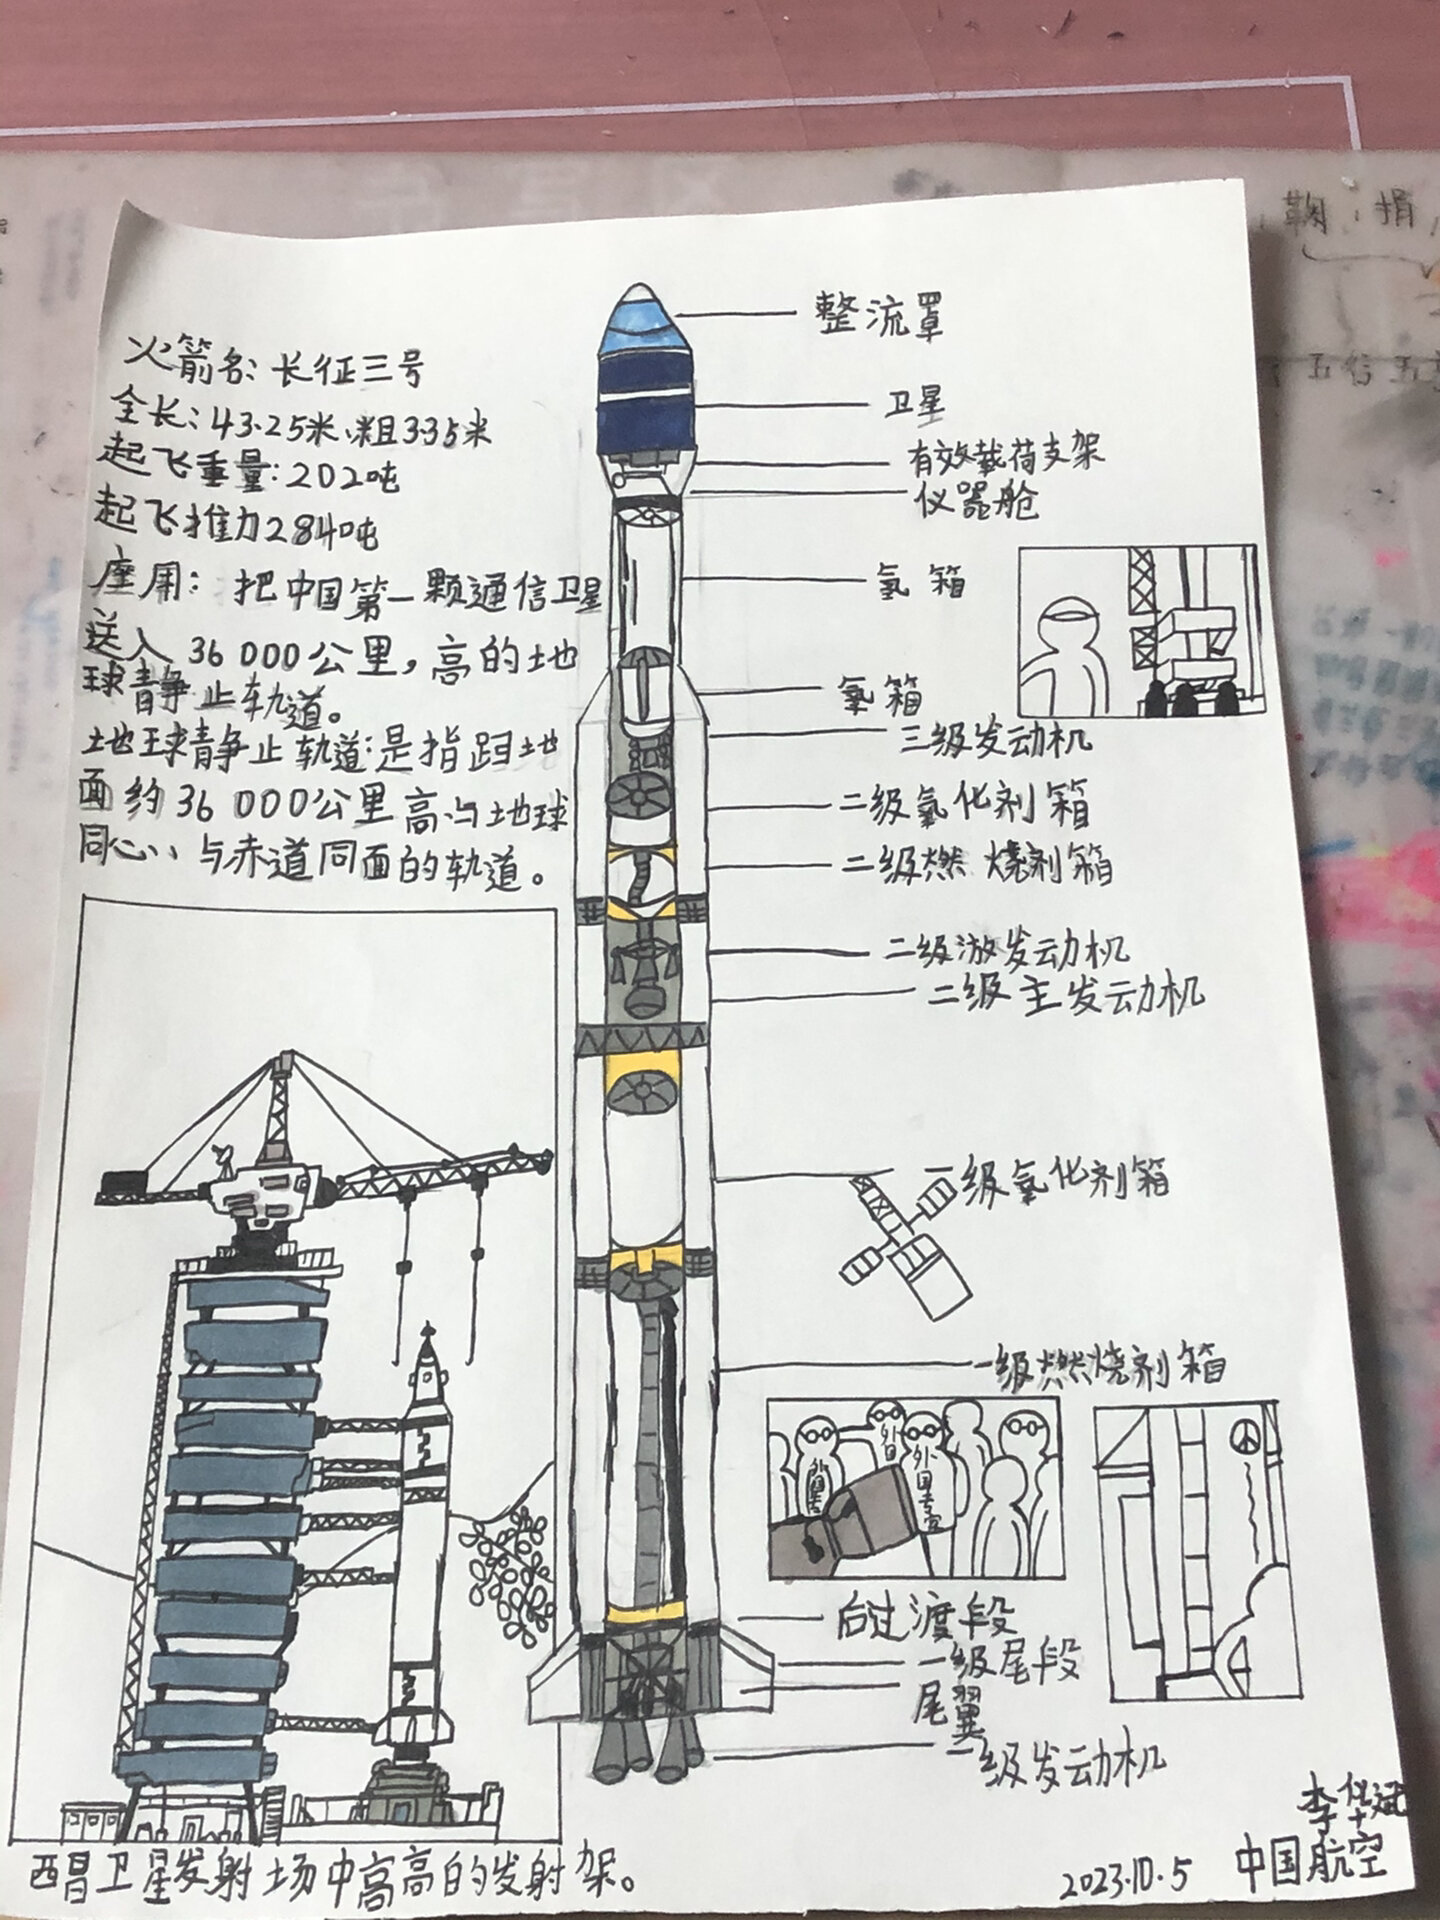 火箭名:长征三号
全长:43.25米、粗3.35米
起飞重量:202吨
起飞推力284吨
座用:把中国第一颗通信卫星
送入36000公里,高的地
球静止轨道。
地球静止轨道:是指距地
面约36000公里高、与地球
同心、与赤道同面的轨道。
整流罩
卫星
有效载荷支架
仪器舱
氢箱
氧箱
三级发动机
二级氧化剂箱
二级燃烧剂箱
二级游发动机
二级主发动机
一级氧化剂箱
一级燃烧剂箱
外国
外国专家
后过渡段
一级尾段
尾翼
一级发动机
西昌卫星发射场中高高的发射架。
2023.10.5
中国航空
鞠 捐